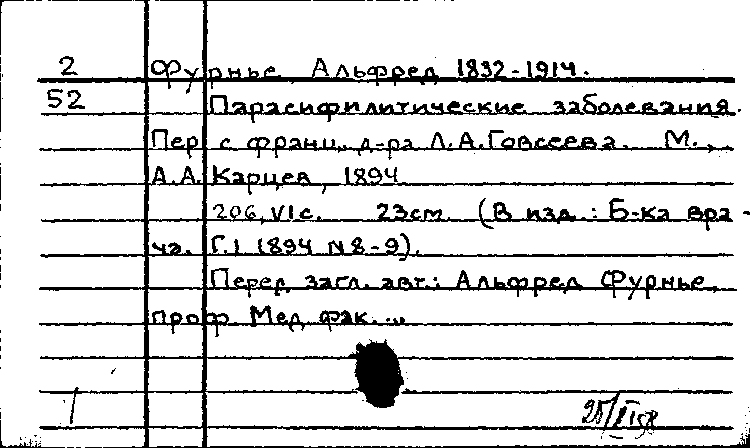 2 Фурнье, Альфред 1832-1914.
52 Парасифилитические заболевания.
Пер. с франц. д-ра Л.А.Говсеева. М.,
А.А. Карцев, 1894.
206, VI с. 23см. (В изд.: Б-ка вра-
ча. Г.1 1894 N8-9).
Перед загл. авт.: Альфред Фурнье,
проф. Мед. фак. ...